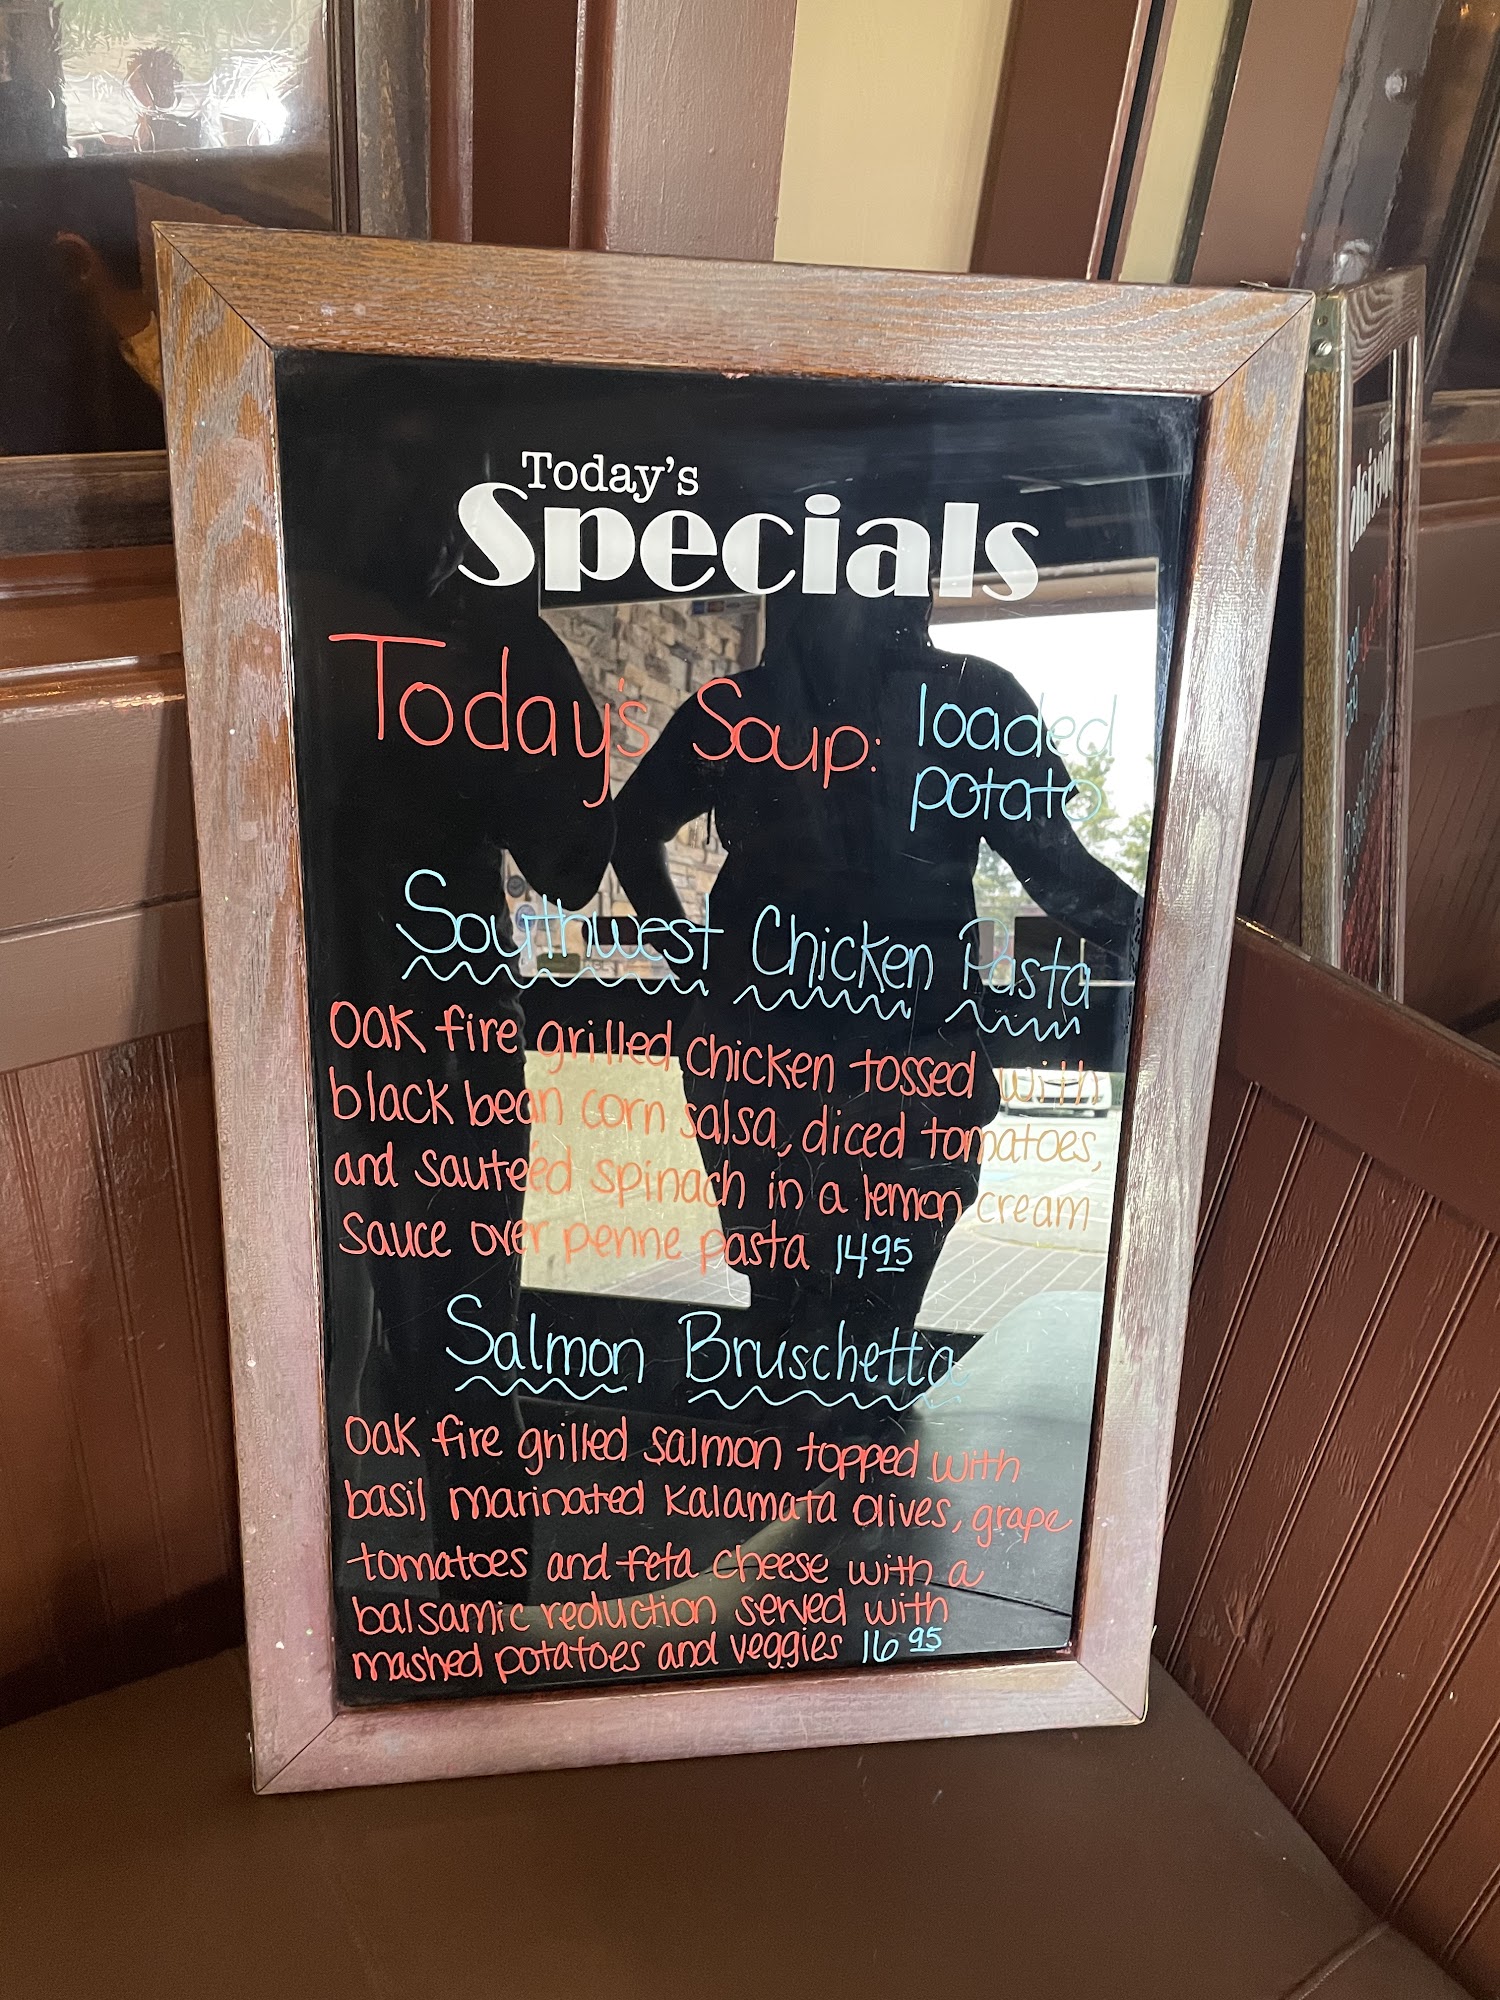 Today's
Specials
Today's Soup: loaded
potato
Southwest Chicken Pasta
Oak fire grilled chicken tossed with
black bean corn salsa, diced tomatoes,
and sauteéd spinach in a lemon cream
sauce over penne pasta 14 95
Salmon Bruschetta
Oak fire grilled salmon topped with
basil marinated Kalamata olives, grape
tomatoes and feta cheese with a
balsamic reduction served with
mashed potatoes and veggies 16 95